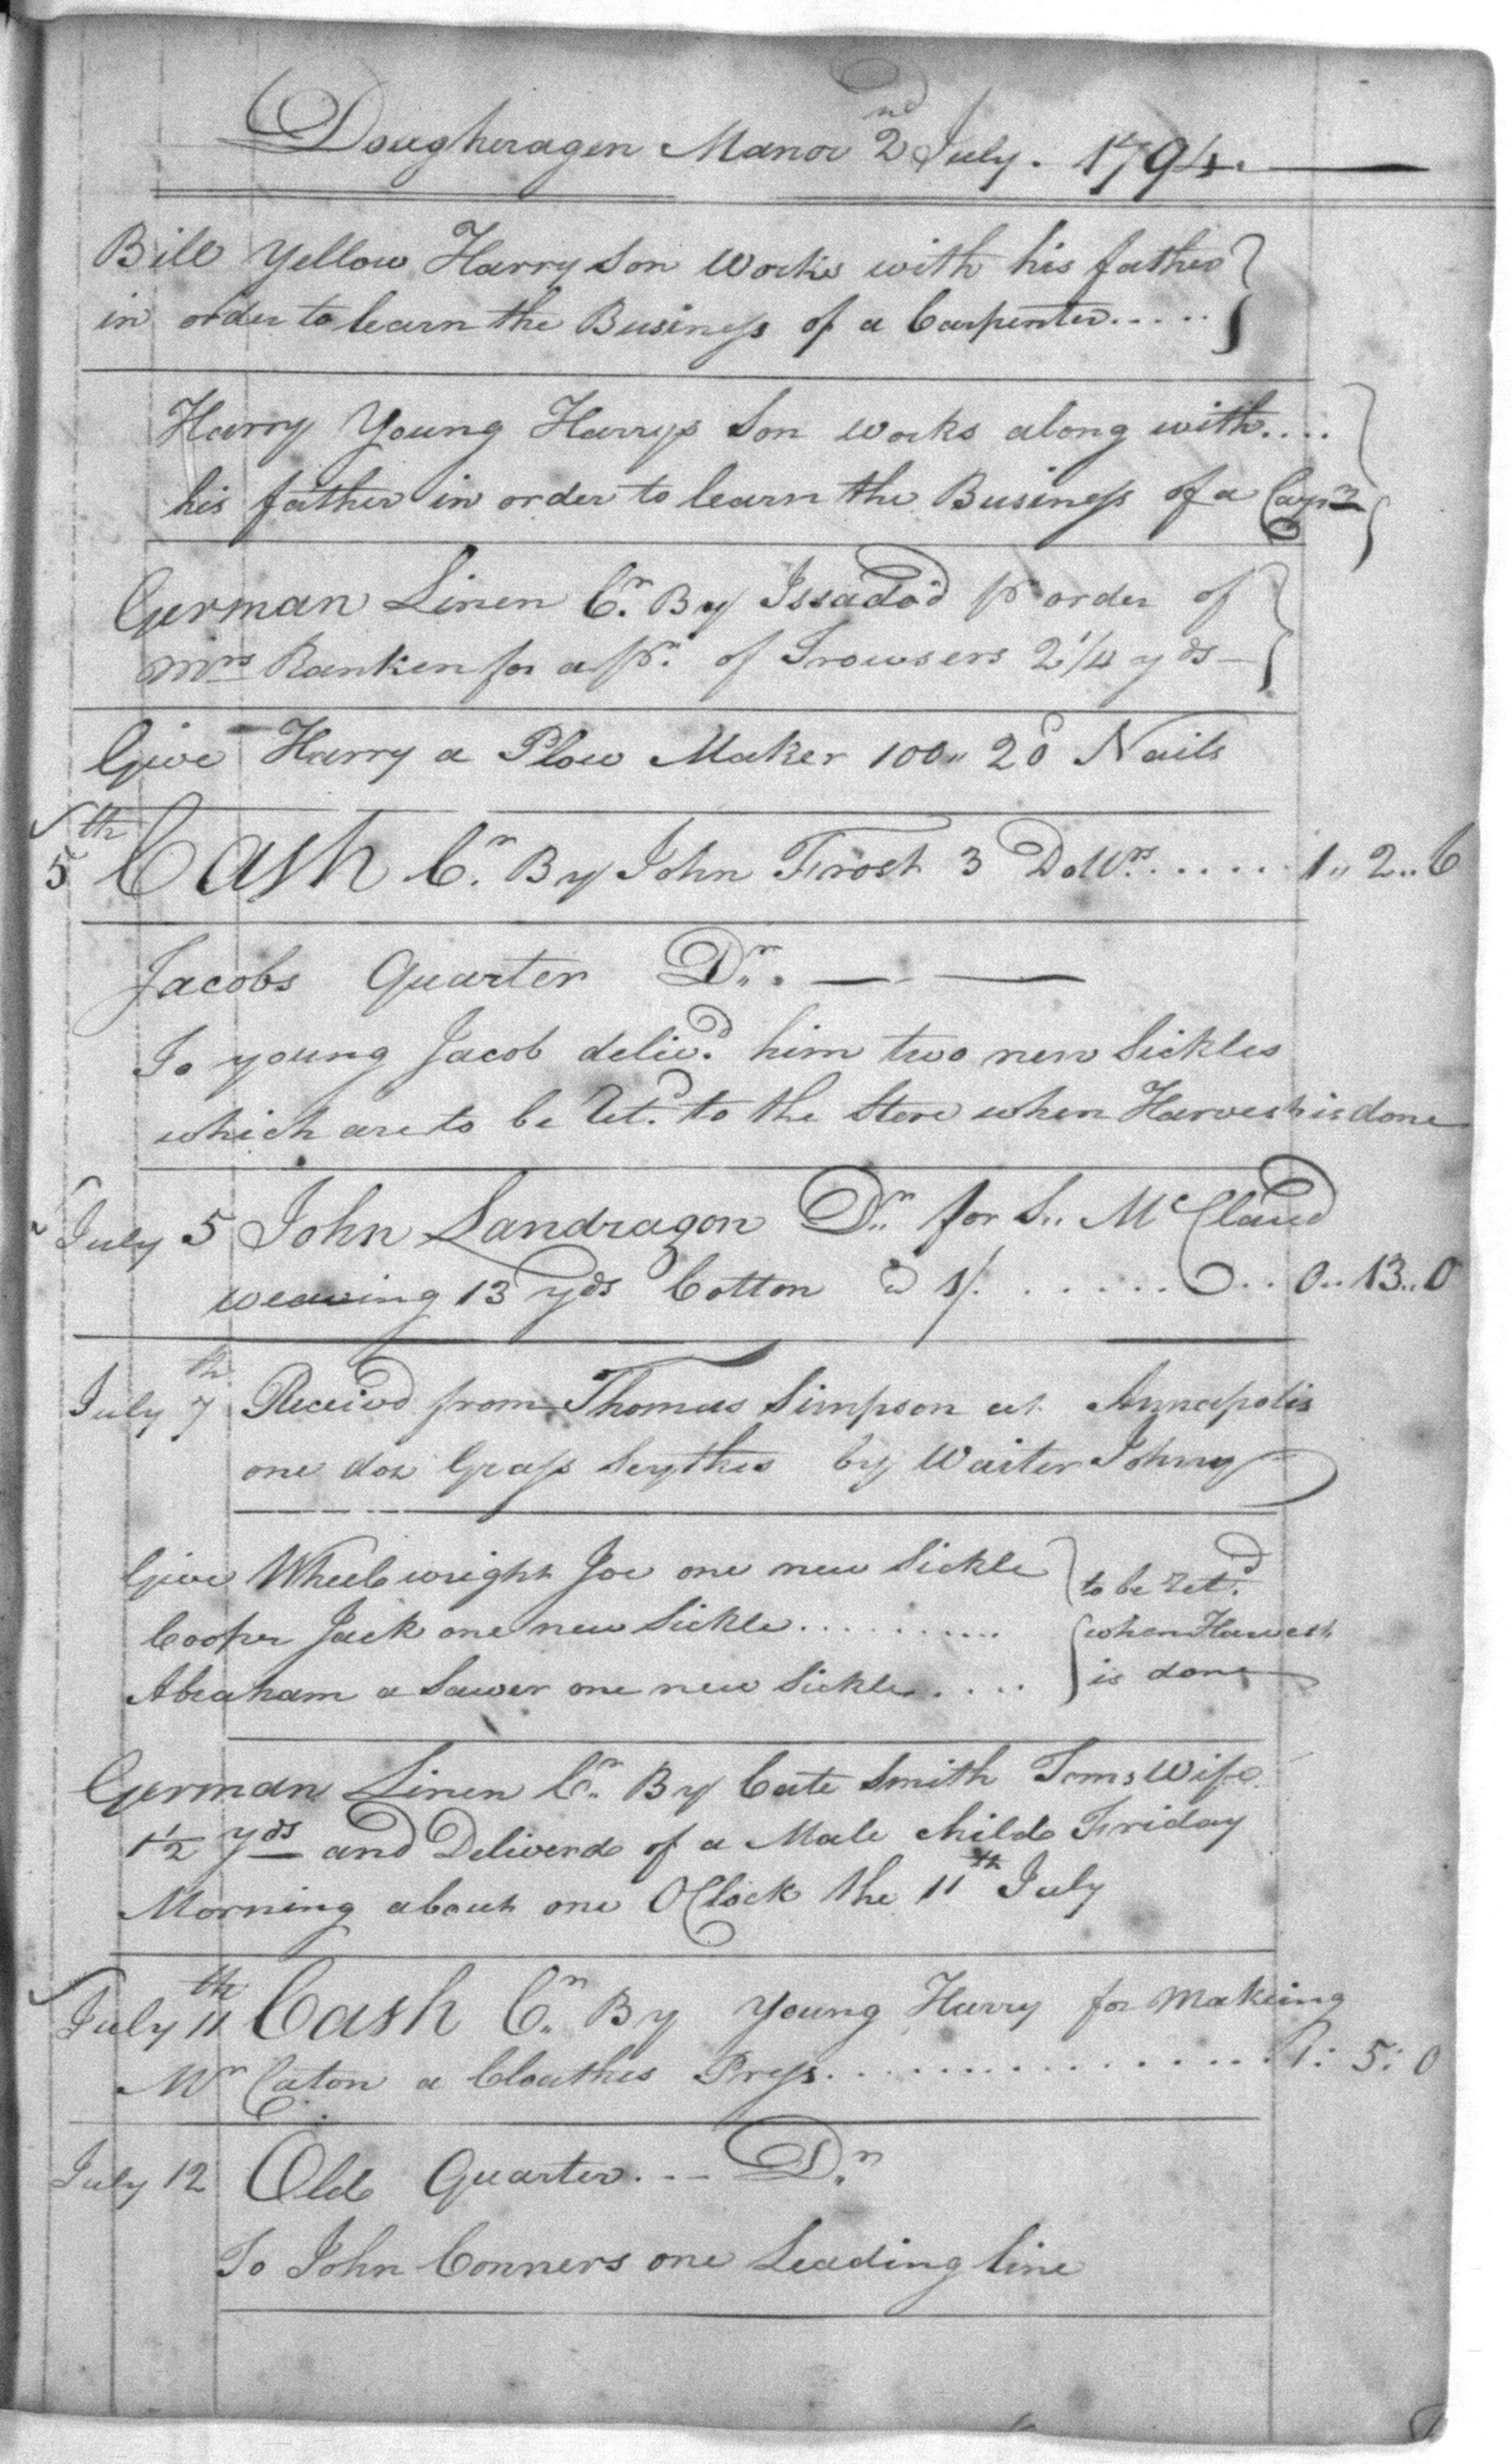 Dougheragen Manor 2nd July. 1794.
Bill Yellow Harry Son Works with his father
in order to learn the Business of a Carpenter.....
Harry Young Harrys Son works along with....
his father in order to learn the Business of a Carpr
German Linen Cr. By Issadod pr order of
Mrs Ranken for a pr. of Trowsers 2 1/4 yds
Give Harry a Plow Maker 100,, 20d Nails
5th Cash Cr. By John Frost 3 Dollrs...... 1,, 2,, 6
Jacobs Quarter Dr.
To young Jacob delivd. him two new Sickles
which are to be Retd. to the Store when Harvest is done
July 5 John Landragon Dr. for S,, McClaud
weaving 13 yds Cotton @ 1/. ........ 0,, 13,, 0
July 7th Receivd from Thomas Simpson at Annapolis
one doz Grass Scythes by Waiter Johny
Give Wheelwright Joe one new Sickle to be Retd.
Cooper Jack one new Sickle.......... when Harvest
Abraham a Sawer one new Sickle.... is done
German Linen Cr. By Cate Smith Toms Wife
1 1/2 yds and Deliverd of a Male child Friday
Morning about one OClock the 11th July
July 11th Cash Cr. By Young Harry for Makeing
Mr Caton a Cloathes Press................ 1: 5: 0
July 12 Old Quarter. -- Dr.
To John Conners one Leading line